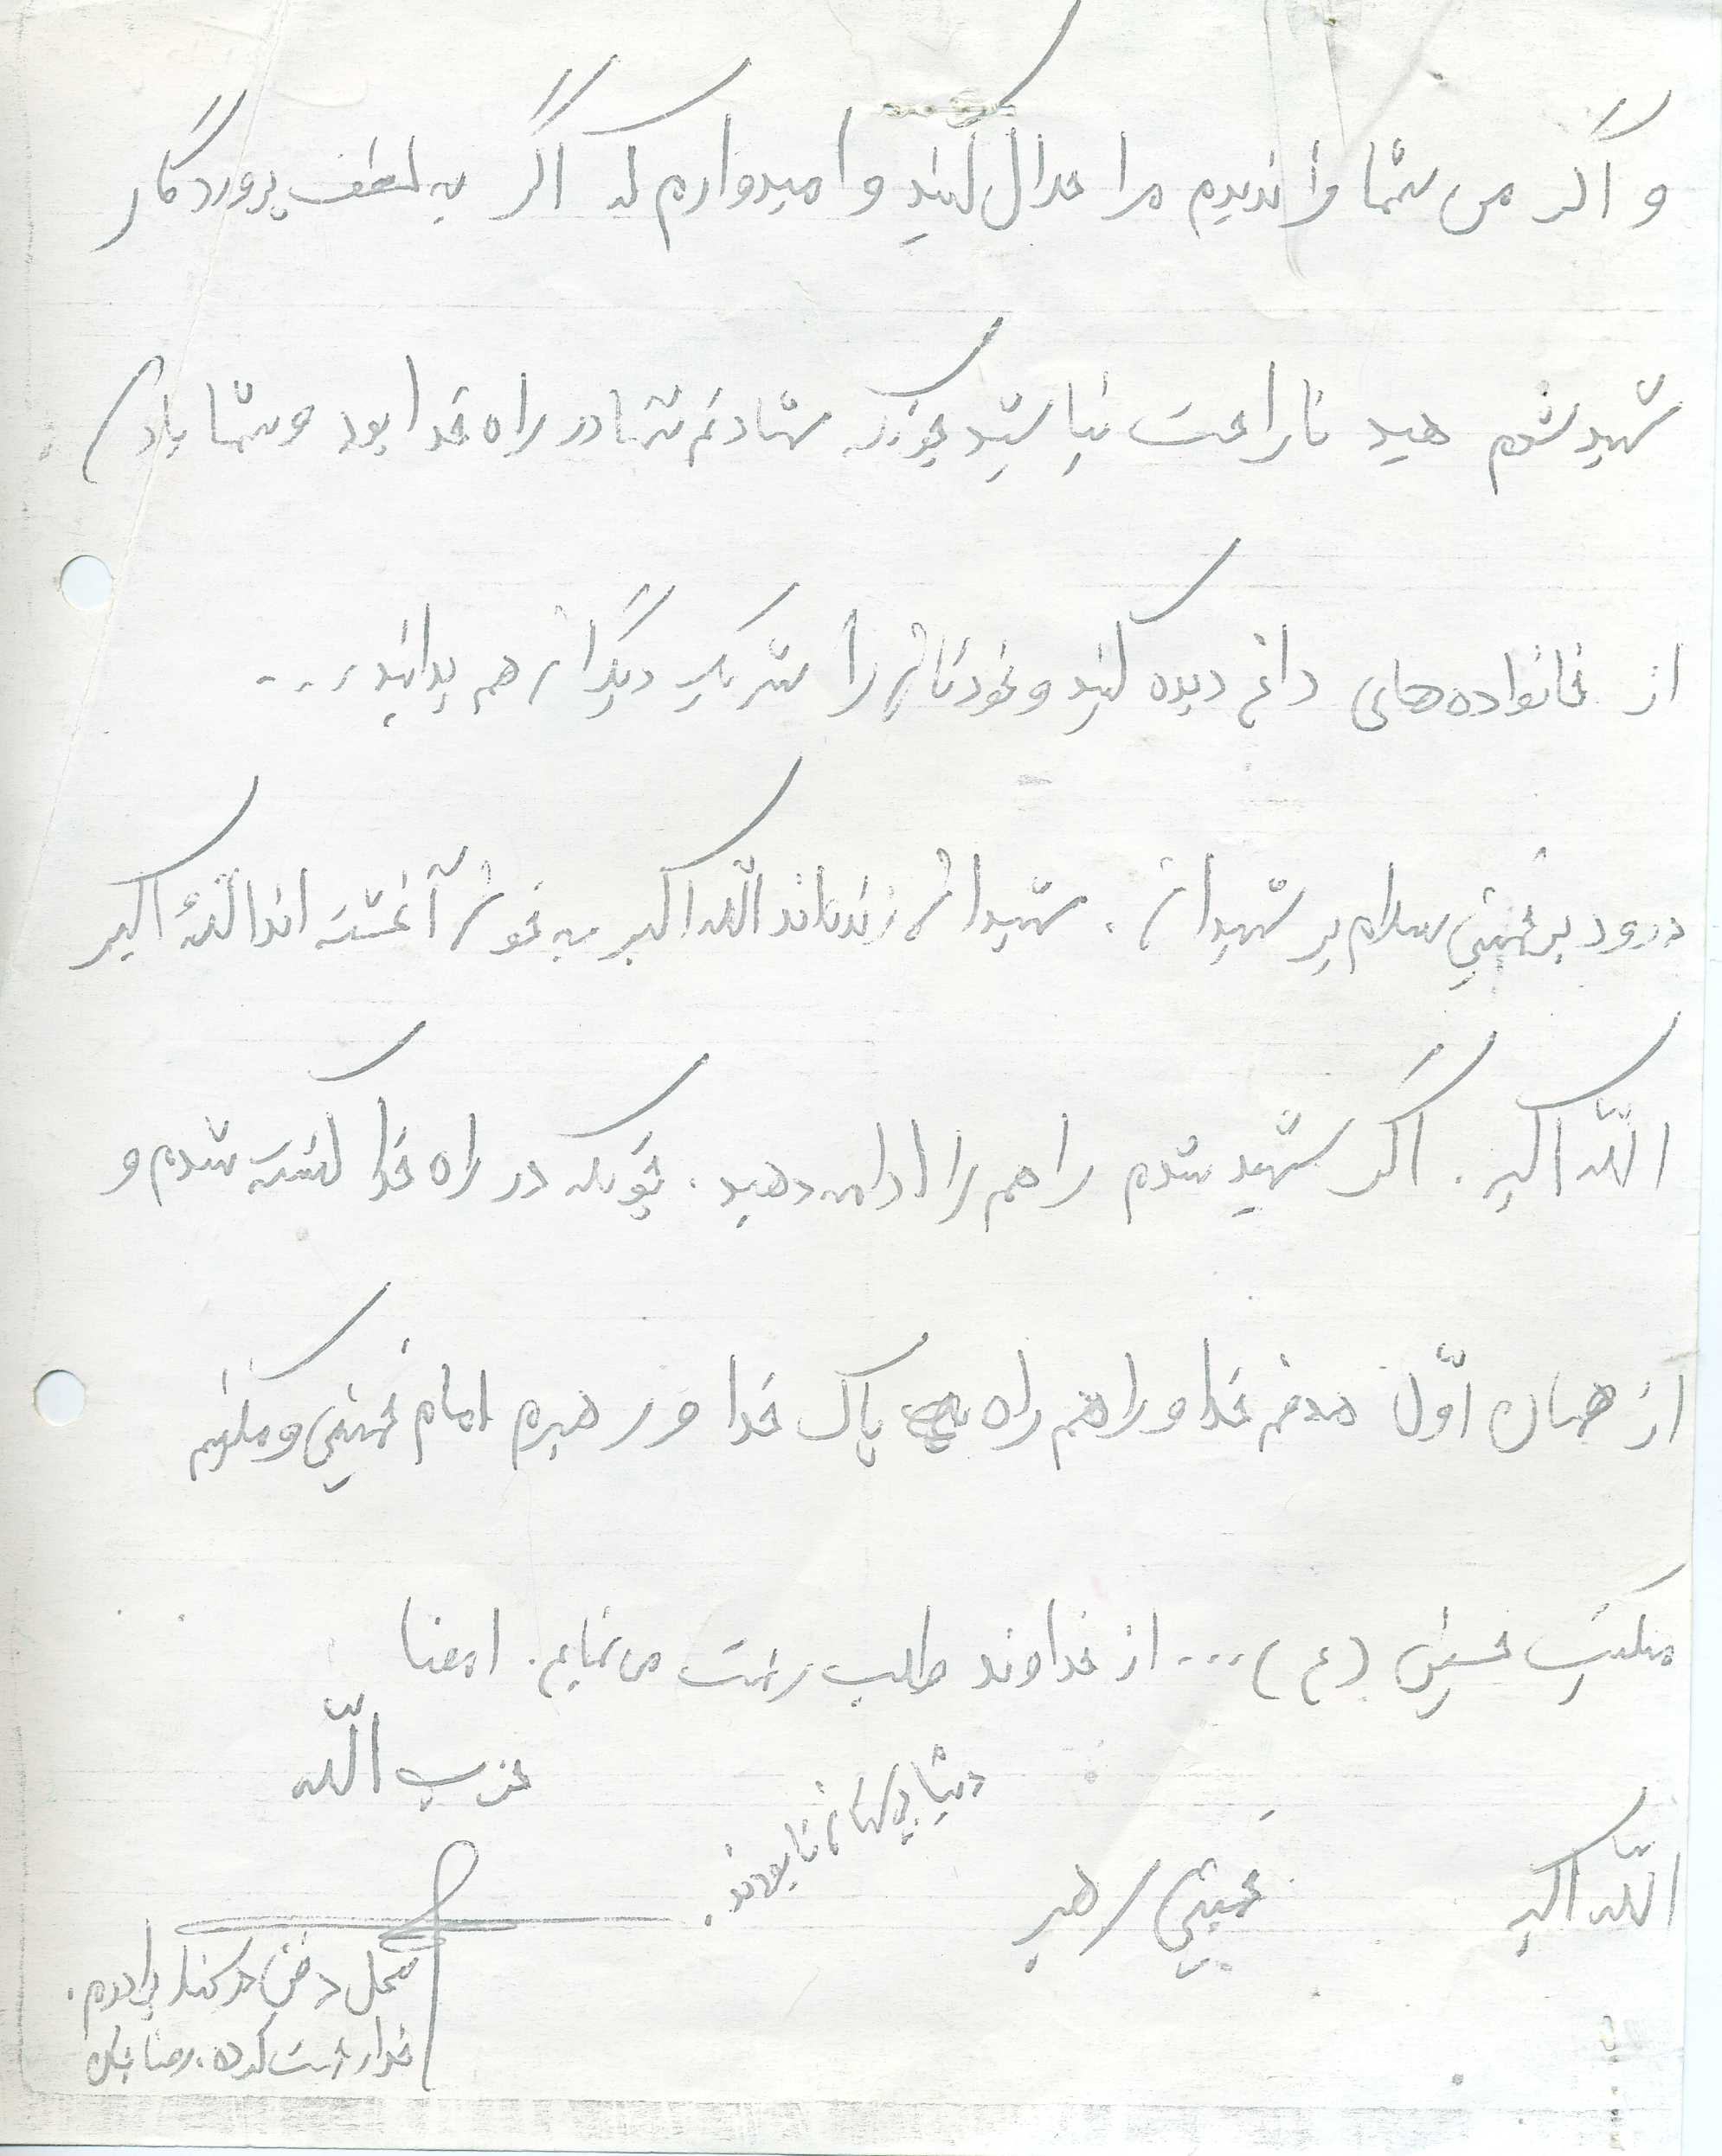 و اگر من شما را ندیدم مرا حلال کنید و امیدوارم که اگر به لطف پروردگار
شهید شدم هید ناراحت نباشید چونکه شهادتم تنها در راه خدا بود و شما یادی
از خانواده‌های داغ دیده کنید و خودتان را شریک دیگران هم بدانید ...
درود بر خمینی سلام بر شهیدان . شهیدان زنده‌اند الله اکبر به خون آغشته اند الله اکبر
الله اکبر . اگر شهید شدم راهم را ادامه دهید . چونکه در راه خدا کشته شدم و
از همان اوّل هدفم خدا و راهم راه پاک خدا و رهبرم امام خمینی و مکتبم
مکتب حسین (ع) ... از خداوند طلب رحمت می نمایم . امضا
حزب الله
الله اکبر
خمینی رهبر
محل دفن در کنار برادرم .
خدا رحمت کرده ، رضا